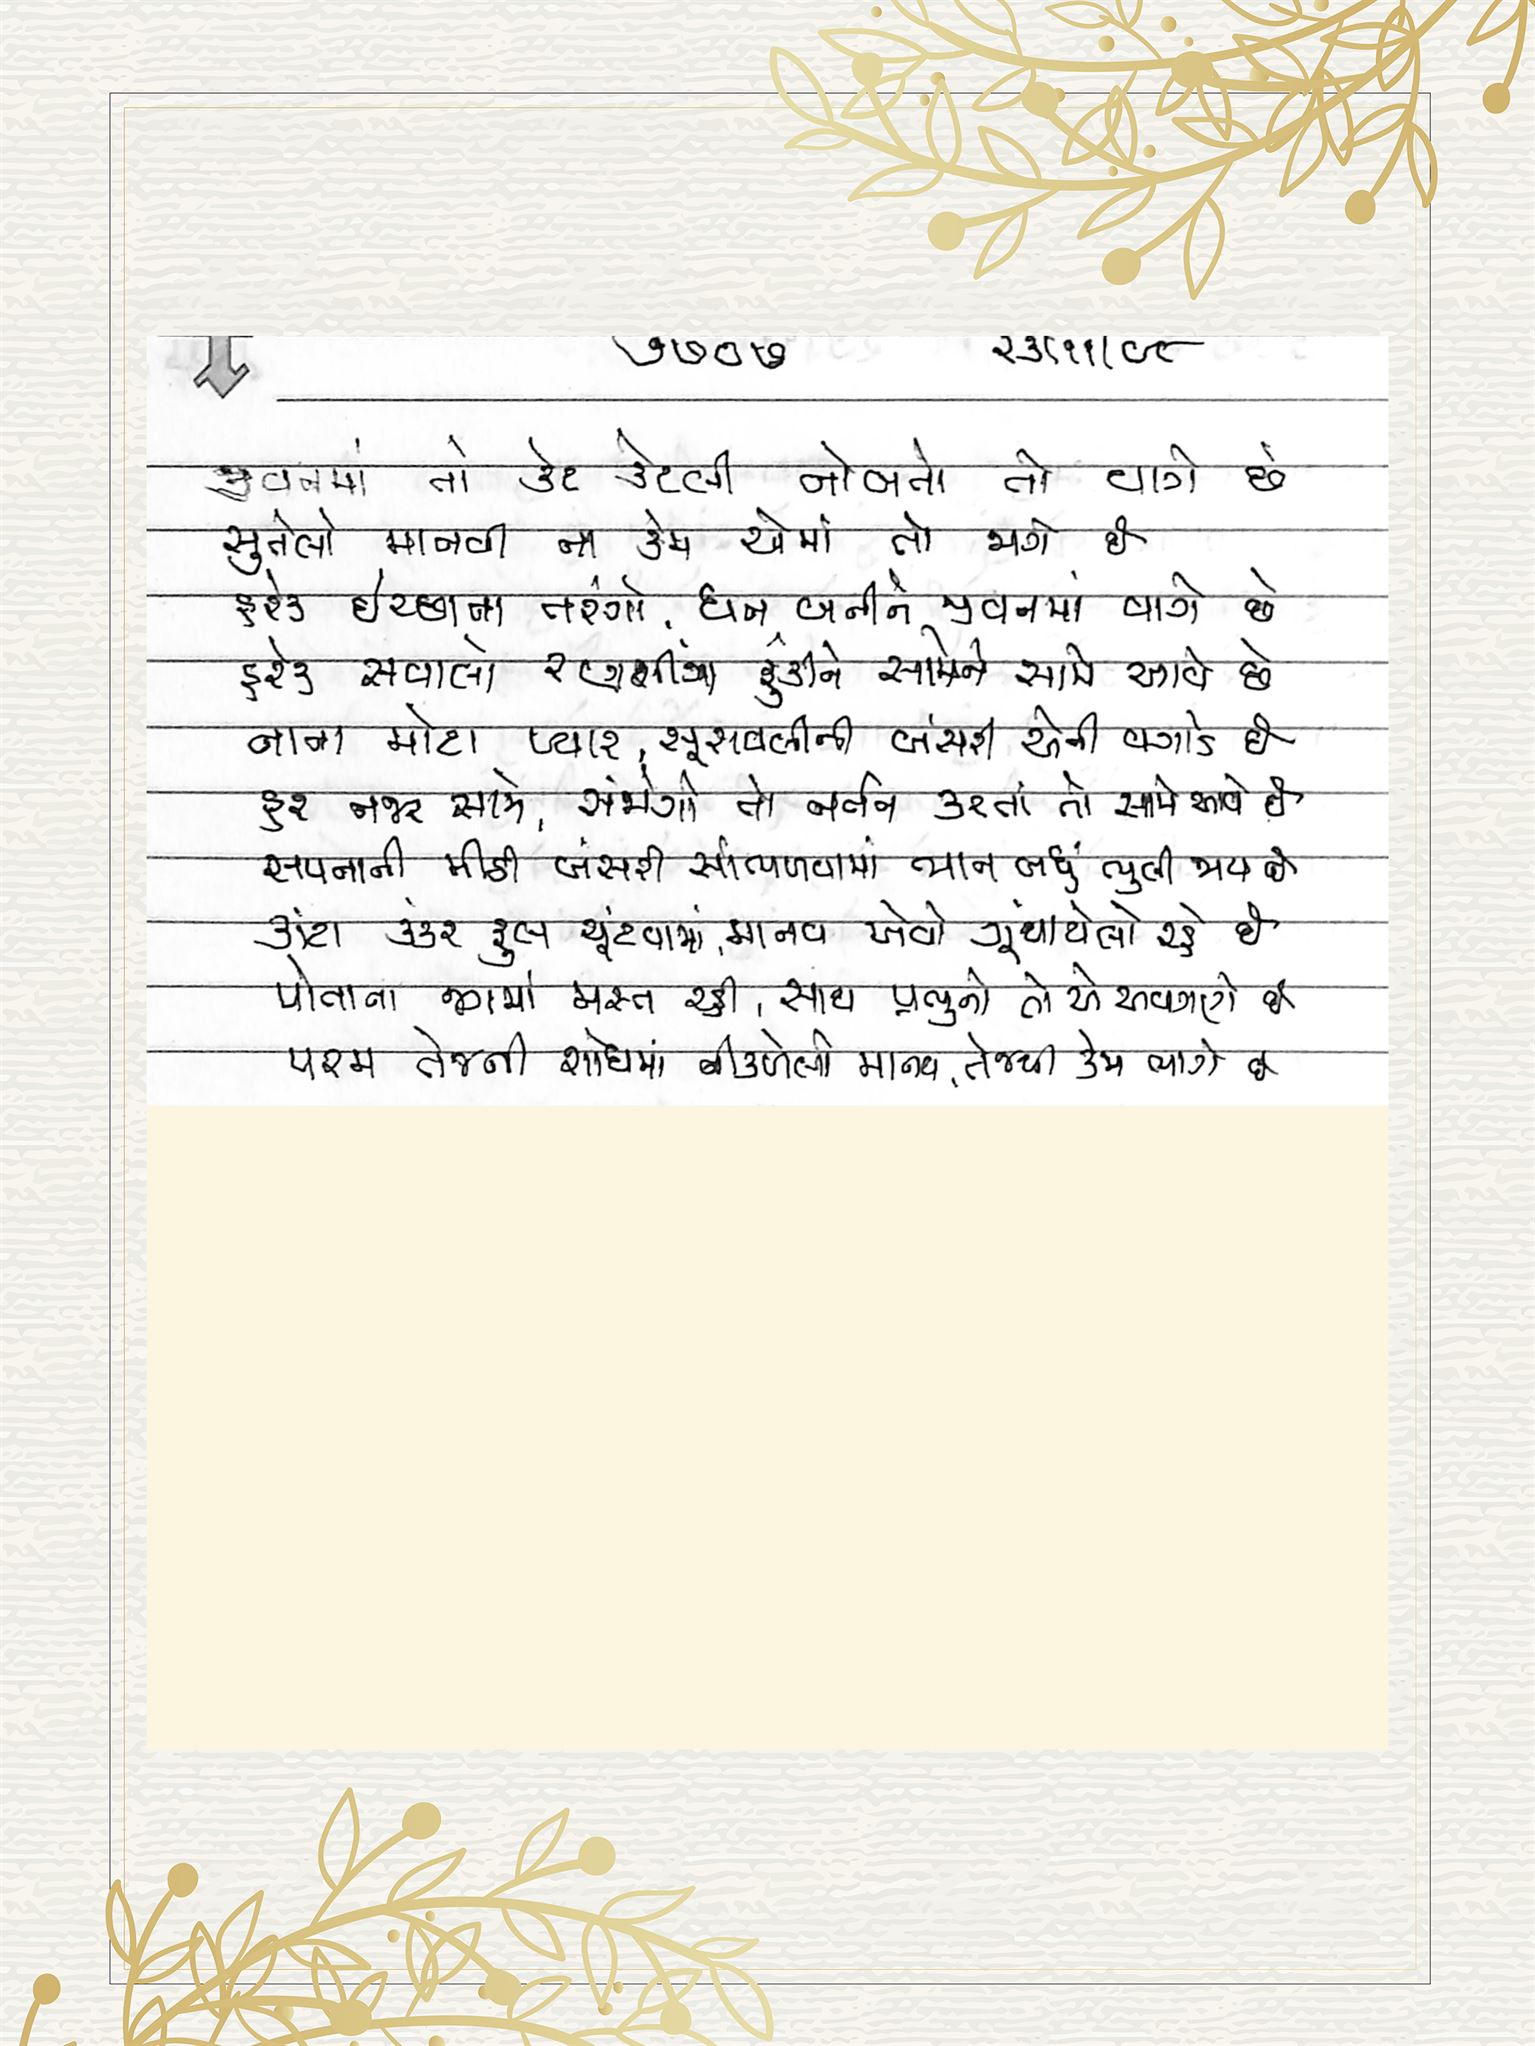 ૭૭૦૭ ૨૩/૧૧/૦૯
જીવનમાં તો કંઈ કેટલી નોબતો તો વાગે છે
સુતેલો માનવી ના કેમ એમાં તો જાગે છે
હરેક ઈચ્છાના તરંગો, ધન બનીને જીવનમાં વાગે છે
હરેક સવાલો રણશીંગા ફુંકીને સામેને સામે આવે છે
નાના મોટા પ્યાર, સૂરાવલીની બંસરી એની વગાડે છે
હર નજર સામે, સંજોગો તો નર્તન કરતાં તો સામે આવે છે
સપનાની મીઠી બંસરી સાંભળવામાં ભાન બધું ભુલી જાય છે
કાંટા કંકર ફુલ ચૂંટવામાં, માનવ એવો ગૂંથાયેલો રહે છે
પોતાના જગમાં મસ્ત રહી, સાદ પ્રભુનો તો એ અવગણે છે
પરમ તેજની શોધમાં નીકળેલો માનવ, તેજથી કેમ ભાગે છે